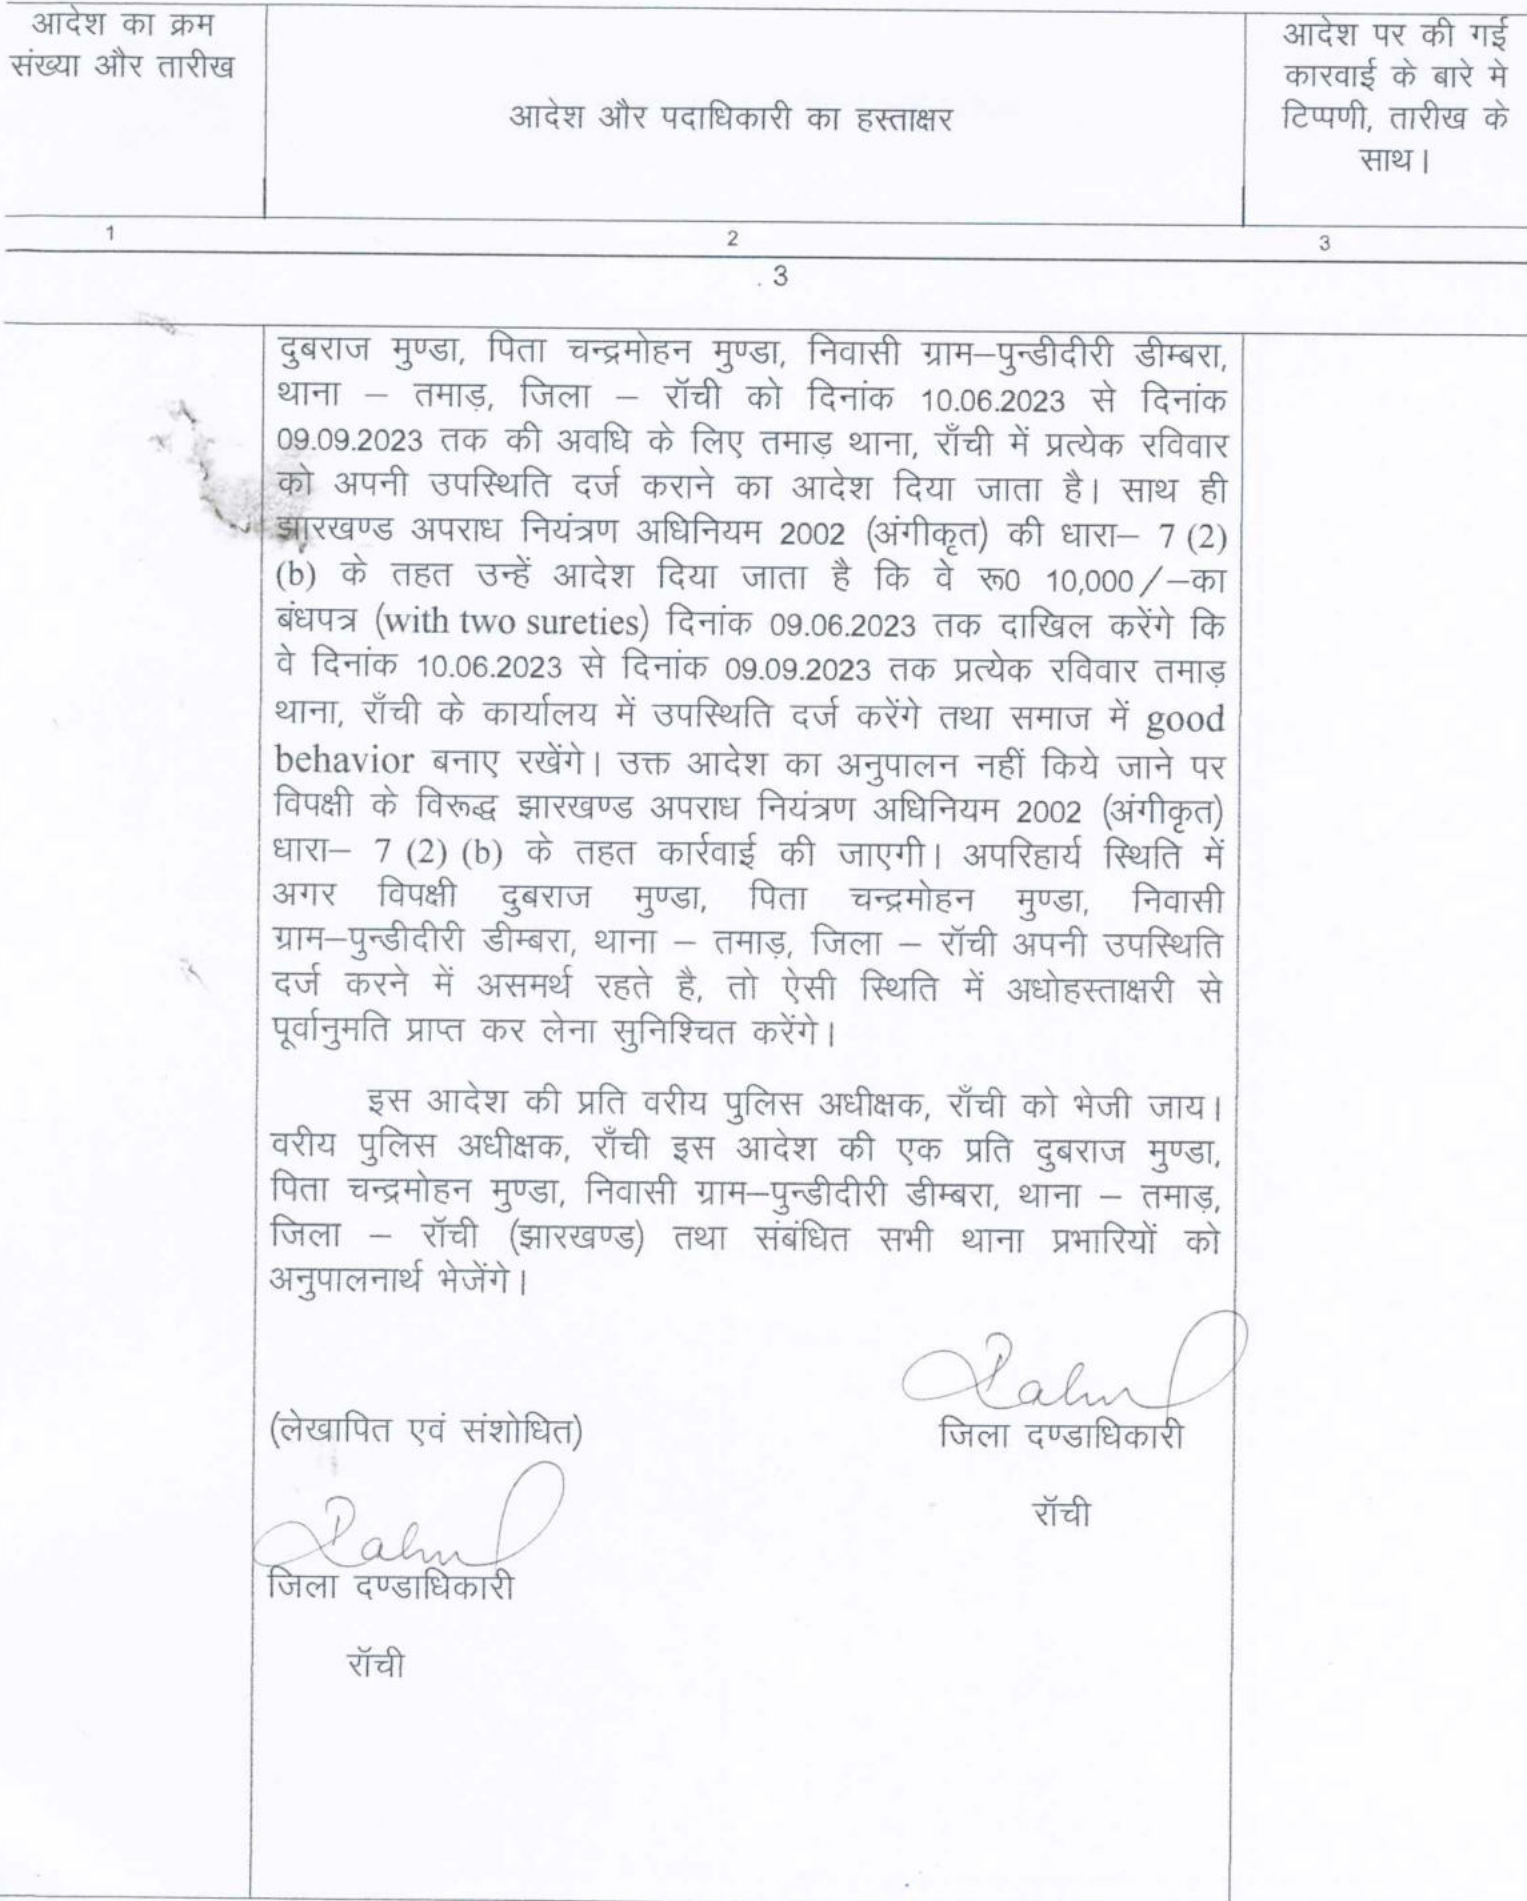 आदेश का क्रम
संख्या और तारीख
आदेश और पदाधिकारी का हस्ताक्षर
आदेश पर की गई
कारवाई के बारे मे
टिप्पणी, तारीख के
साथ।
1
2
3
3
दुबराज मुण्डा, पिता चन्द्रमोहन मुण्डा, निवासी ग्राम–पुन्डीदीरी डीम्बरा,
थाना – तमाड़, जिला – रॉची को दिनांक 10.06.2023 से दिनांक
09.09.2023 तक की अवधि के लिए तमाड़ थाना, राँची में प्रत्येक रविवार
को अपनी उपस्थिति दर्ज कराने का आदेश दिया जाता है। साथ ही
झारखण्ड अपराध नियंत्रण अधिनियम 2002 (अंगीकृत) की धारा– 7 (2)
(b) के तहत उन्हें आदेश दिया जाता है कि वे रू0 10,000/–का
बंधपत्र (with two sureties) दिनांक 09.06.2023 तक दाखिल करेंगे कि
वे दिनांक 10.06.2023 से दिनांक 09.09.2023 तक प्रत्येक रविवार तमाड़
थाना, राँची के कार्यालय में उपस्थिति दर्ज करेंगे तथा समाज में good
behavior बनाए रखेंगे। उक्त आदेश का अनुपालन नहीं किये जाने पर
विपक्षी के विरूद्ध झारखण्ड अपराध नियंत्रण अधिनियम 2002 (अंगीकृत)
धारा– 7 (2) (b) के तहत कार्रवाई की जाएगी। अपरिहार्य स्थिति में
अगर विपक्षी दुबराज मुण्डा, पिता चन्द्रमोहन मुण्डा, निवासी
ग्राम–पुन्डीदीरी डीम्बरा, थाना – तमाड़, जिला – रॉची अपनी उपस्थिति
दर्ज करने में असमर्थ रहते है, तो ऐसी स्थिति में अधोहस्ताक्षरी से
पूर्वानुमति प्राप्त कर लेना सुनिश्चित करेंगे।
इस आदेश की प्रति वरीय पुलिस अधीक्षक, राँची को भेजी जाय।
वरीय पुलिस अधीक्षक, राँची इस आदेश की एक प्रति दुबराज मुण्डा,
पिता चन्द्रमोहन मुण्डा, निवासी ग्राम–पुन्डीदीरी डीम्बरा, थाना – तमाड़,
जिला – रॉची (झारखण्ड) तथा संबंधित सभी थाना प्रभारियों को
अनुपालनार्थ भेजेंगे।
(लेखापित एवं संशोधित)
जिला दण्डाधिकारी
रॉची
जिला दण्डाधिकारी
रॉची